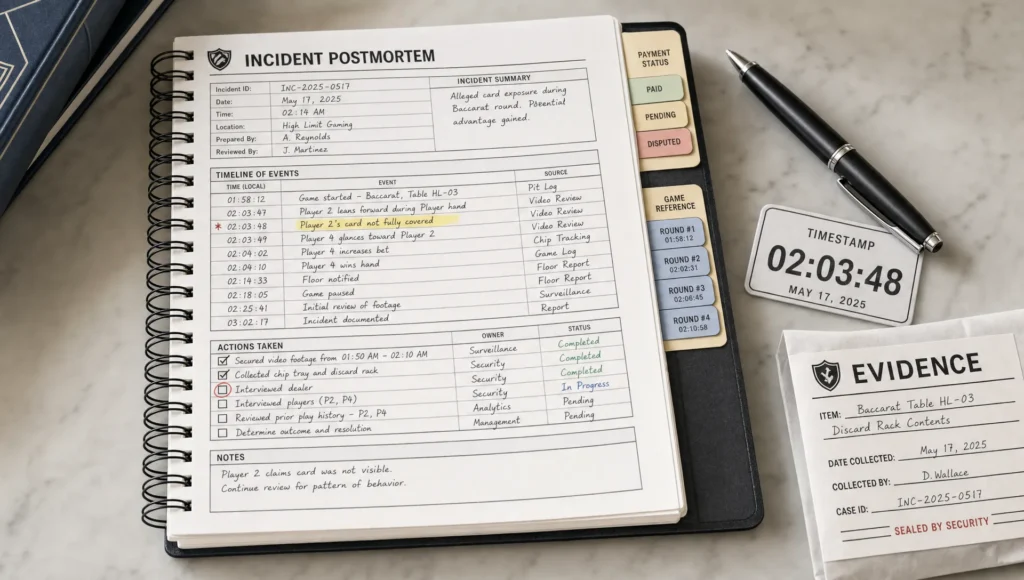 INCIDENT POSTMORTEM
Incident ID: INC-2025-0517
Date: May 17, 2025
Time: 02:14 AM
Location: High Limit Gaming
Prepared By: A. Reynolds
Reviewed By: J. Martinez
INCIDENT SUMMARY
Alleged card exposure during
Baccarat round. Potential
advantage gained.
TIMELINE OF EVENTS
TIME (LOCAL) EVENT SOURCE
01:58:12 Game started - Baccarat, Table HL-03 Pit Log
02:03:47 Player 2 leans forward during Player hand Video Review
* 02:03:48 Player 2's card not fully covered Video Review
02:03:49 Player 4 glances toward Player 2 Video Review
02:04:02 Player 4 increases bet Chip Tracking
02:04:10 Player 4 wins hand Game Log
02:14:33 Floor notified Floor Report
02:18:05 Game paused Floor Report
02:25:41 Initial review of footage Surveillance
03:02:17 Incident documented Report
ACTIONS TAKEN OWNER STATUS
Secured video footage from 01:50 AM - 02:10 AM Surveillance Completed
Collected chip tray and discard rack Security Completed
Interviewed dealer Security Completed
Interviewed players (P2, P4) Security In Progress
Reviewed prior play history - P2, P4 Analytics Pending
Determine outcome and resolution Management Pending
NOTES
Player 2 claims card was not visible.
Continue review for pattern of behavior.
PAYMENT
STATUS
PAID
PENDING
DISPUTED
GAME
REFERENCE
ROUND #1
01:58:12
ROUND #2
02:02:31
ROUND #3
02:06:45
ROUND #4
02:10:58
TIMESTAMP
02:03:48
MAY 17, 2025
EVIDENCE
ITEM: Baccarat Table HL-03
Discard Rack Contents
DATE COLLECTED: May 17, 2025
COLLECTED BY: D. Wallace
CASE ID: INC-2025-0517
SEALED BY SECURITY